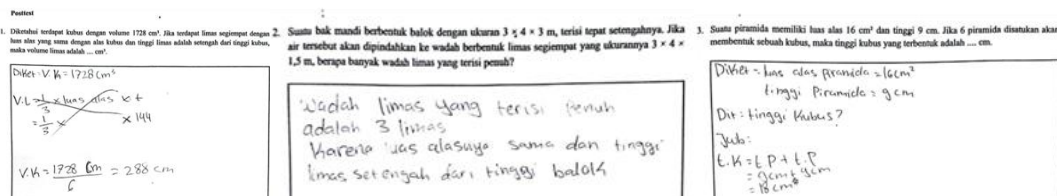 Posttest
1. Diketahui terdapat kubus dengan volume 1728 cm³. Jika terdapat limas segiempat dengan
luas alas yang sama dengan alas kubus dan tinggi limas adalah setengah dari tinggi kubus,
maka volume limas adalah .... cm³.
Diket: V.K = 1728 cm³
V.L = 1/3 x luas alas x t
= 1/3 x x 144
V.K = 1728 cm / 6 = 288 cm
2. Suatu bak mandi berbentuk balok dengan ukuran 3 x 4 × 3 m, terisi tepat setengahnya. Jika
air tersebut akan dipindahkan ke wadah berbentuk limas segiempat yang ukurannya 3 × 4 ×
1,5 m, berapa banyak wadah limas yang terisi penuh?
Wadah limas yang terisi Penuh
adalah 3 limas
Karena luas alasnya sama dan tinggi
limas setengah dari tinggi balok
3. Suatu piramida memiliki luas alas 16 cm² dan tinggi 9 cm. Jika 6 piramida disatukan akan
membentuk sebuah kubus, maka tinggi kubus yang terbentuk adalah .... cm.
Diket = luas alas Piramida = 16cm²
tinggi Piramida = 9 cm
Dit: tinggi Kubus?
Jwb:
t.K = t.P + t.P
= 9cm + 9cm
= 18 cm